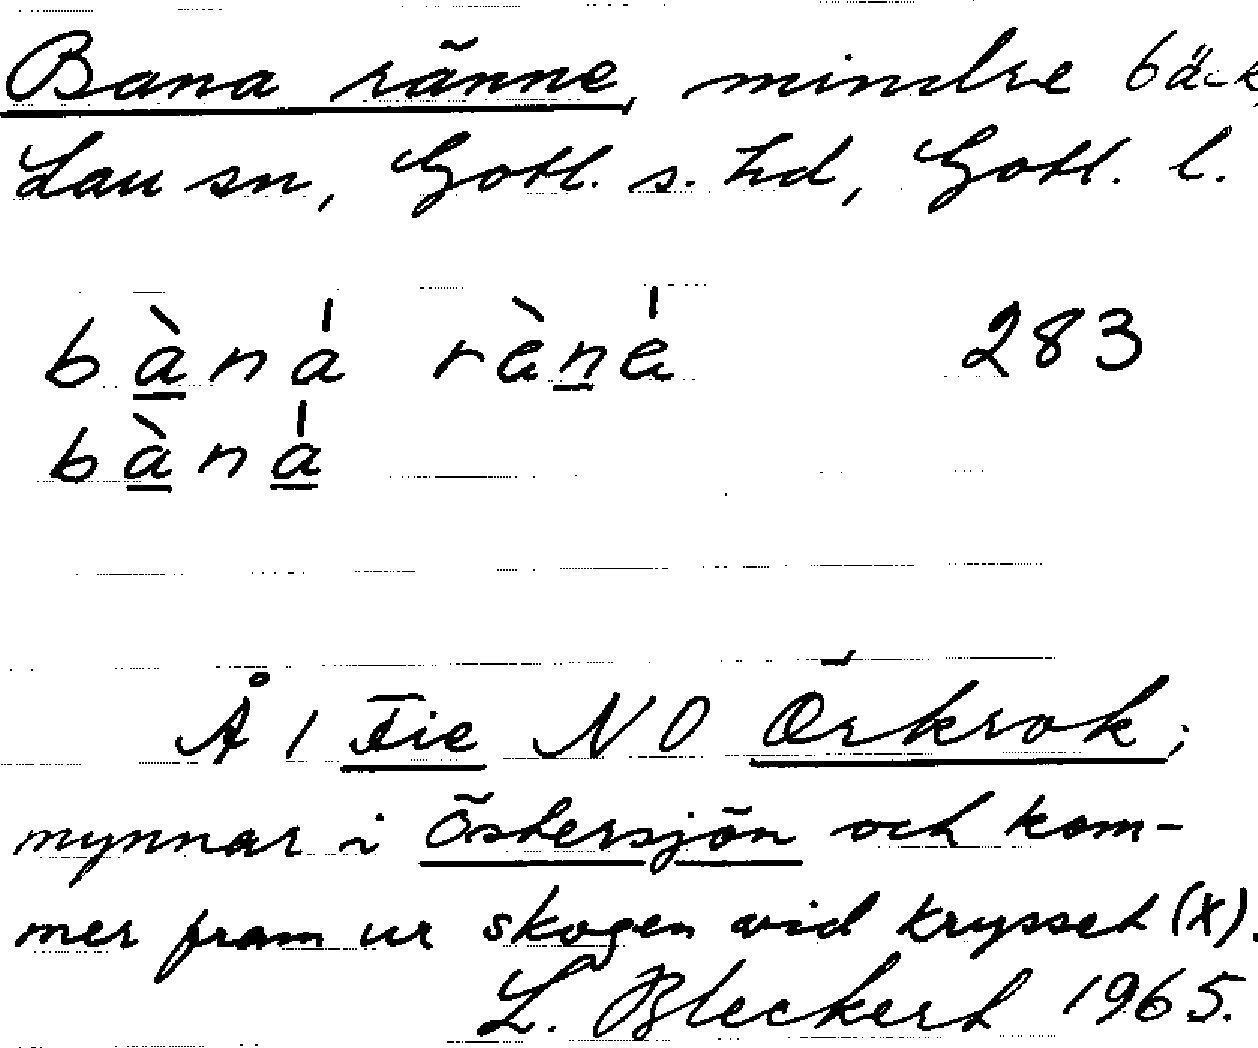 Bana ränne, mindre bäck,
Lau sn, Gotl. s. hd, Gotl. l.
bàná rèné 283
bàná
Å 1 Fie NO Örkrok;
mynnar i Östersjön och kom-
mer fram ur skogen vid krysset (X).
L. Bleckert 1965.